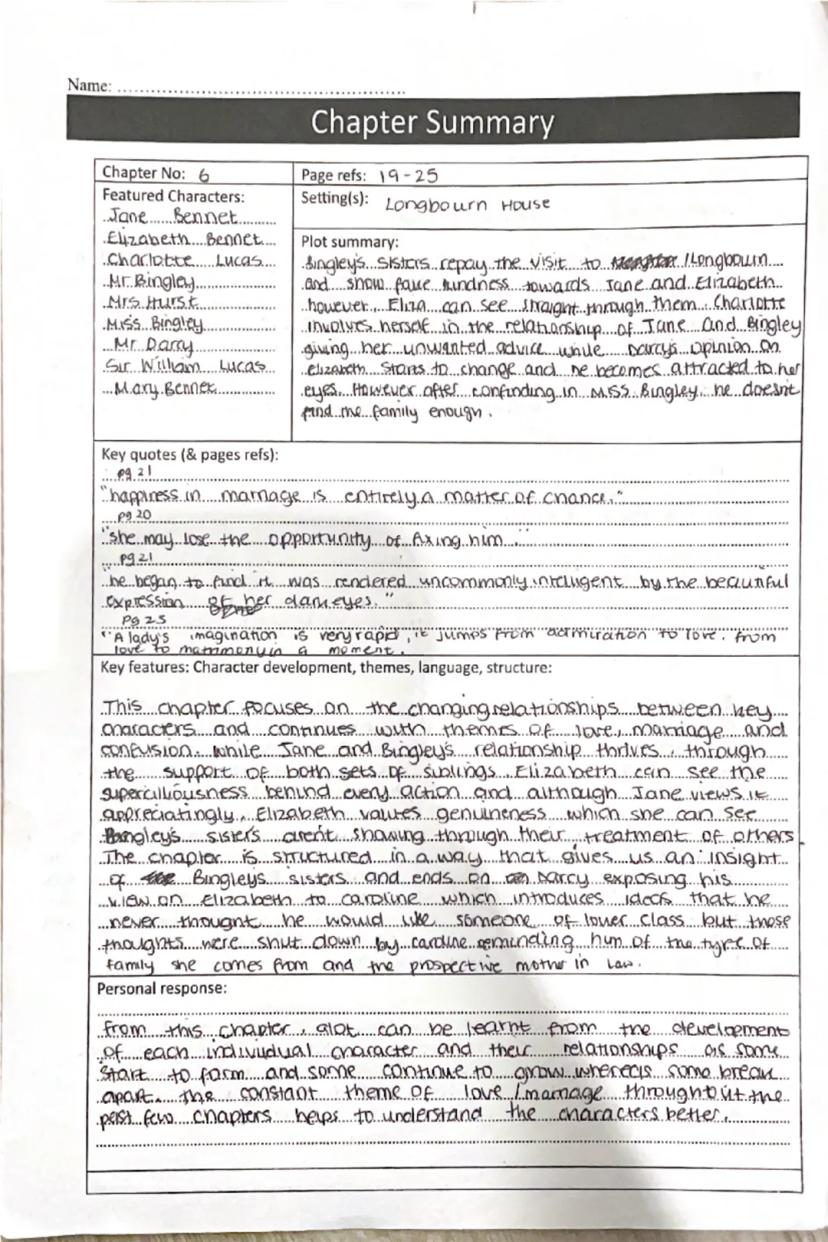 Name: ................................................
Chapter Summary
Chapter No: 6
Page refs: 19-25
Featured Characters:
Jane Bennet
Elizabeth Bennet
Charlotte Lucas
Mr. Bingley
Mrs Hurst
Miss Bingley
Mr Darcy
Sir William Lucas
Mary Bennet
Setting(s): Longbourn House
Plot summary:
Bingley's sisters repay the visit to Longbourn
and show fake kindness towards Jane and Elizabeth
however, Eliza can see straight through them. Charlotte
involves herself in the relationship of Jane and Bingley
giving her unwanted advice while Darcy's opinion on
elizabeth starts to change and he becomes attracted to her
eyes. However after confinding in Miss Bingley, he doesnt
find the family enough.
Key quotes (& pages refs):
pg 21
"happiness in marriage is entirely a matter of chance."
pg 20
"she may lose the opportunity of fixing him."
pg 21
"he began to find it was rendered uncommonly intelligent by the beautiful
expression of her dark eyes."
Pg 25
"A lady's imagination is very rapid, it jumps from admiration to love. from
love to matrimony in a moment.
Key features: Character development, themes, language, structure:
This chapter focuses on the changing relationships between key
characters and continues with themes of love, marriage and
confusion. While Jane and Bingley's relationship thrives, through
the support of both sets of siblings, Elizabeth can see the
superciliousness behind every action and although Jane views it
appreciatingly, Elizabeth values genuineness which she can see
Bingley's sisters arent showing through their treatment of others.
The chapter is structured in a way that gives us an insight
of Bingleys sisters and ends on Darcy exposing his
view on elizabeth to caroline which introduces ideas that he
never thought he would like someone of lower class but those
thoughts were shut down by caroline reminding him of the type of
family she comes from and the prospective mother in law.
Personal response:
from this chapter, alot can be learnt from the development
of each individual character and their relationships as some
start to form and some continue to grow whereas some break
apart. the constant theme of love / marriage throughout the
past few chapters helps to understand the characters better.